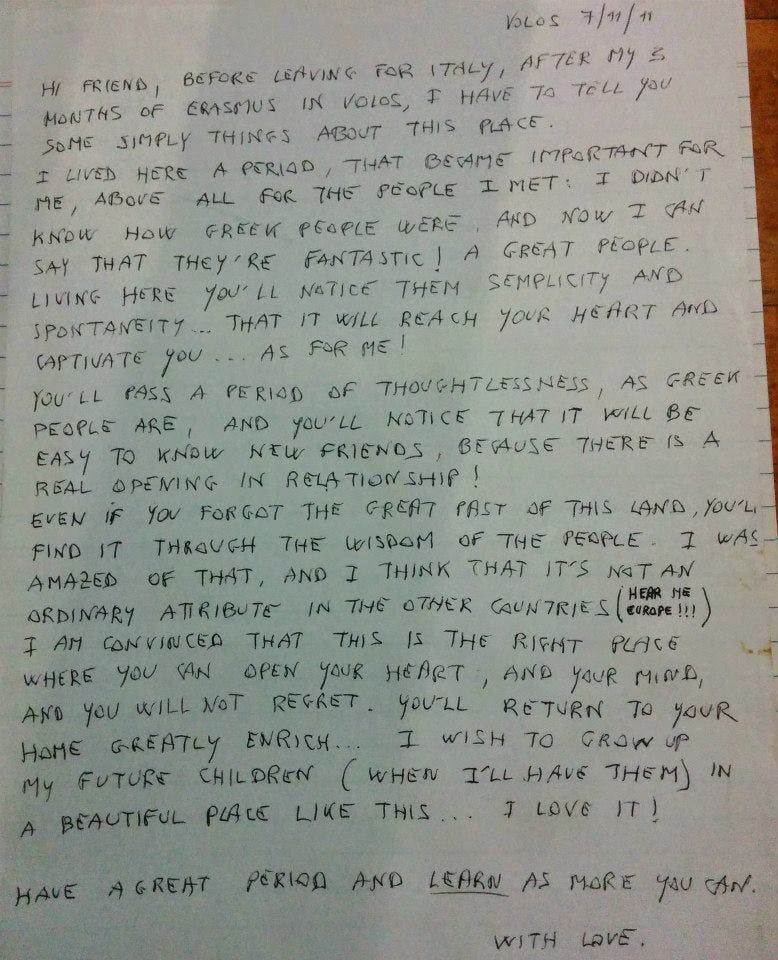 VOLOS 7/11/11
HI FRIEND, BEFORE LEAVING FOR ITALY, AFTER MY 3
MONTHS OF ERASMUS IN VOLOS, I HAVE TO TELL YOU
SOME SIMPLY THINGS ABOUT THIS PLACE.
I LIVED HERE A PERIOD, THAT BECAME IMPORTANT FOR
ME, ABOVE ALL FOR THE PEOPLE I MET: I DIDN'T
KNOW HOW GREEK PEOPLE WERE, AND NOW I CAN
SAY THAT THEY'RE FANTASTIC! A GREAT PEOPLE.
LIVING HERE YOU'LL NOTICE THEM SEMPLICITY AND
SPONTANEITY... THAT IT WILL REACH YOUR HEART AND
CAPTIVATE YOU... AS FOR ME!
YOU'LL PASS A PERIOD OF THOUGHTLESSNESS, AS GREEK
PEOPLE ARE, AND YOU'LL NOTICE THAT IT WILL BE
EASY TO KNOW NEW FRIENDS, BECAUSE THERE IS A
REAL OPENING IN RELATIONSHIP!
EVEN IF YOU FORGOT THE GREAT PAST OF THIS LAND, YOU'LL
FIND IT THROUGH THE WISDOM OF THE PEOPLE. I WAS
AMAZED OF THAT, AND I THINK THAT IT'S NOT AN
ORDINARY ATTRIBUTE IN THE OTHER COUNTRIES (HEAR ME EUROPE!!!)
I AM CONVINCED THAT THIS IS THE RIGHT PLACE
WHERE YOU CAN OPEN YOUR HEART, AND YOUR MIND,
AND YOU WILL NOT REGRET. YOU'LL RETURN TO YOUR
HOME GREATLY ENRICH... I WISH TO GROW UP
MY FUTURE CHILDREN (WHEN I'LL HAVE THEM) IN
A BEAUTIFUL PLACE LIKE THIS... I LOVE IT!
HAVE A GREAT PERIOD AND LEARN AS MORE YOU CAN.
WITH LOVE.